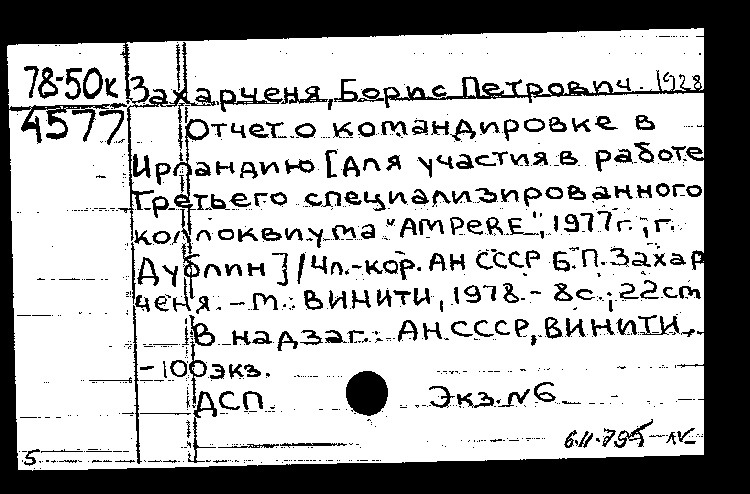 78-50к Захарченя, Борис Петрович. 1928
4577 Отчет о командировке в
Ирландию [для участия в работе
Третьего специализированного
коллоквиума "AMPERE", 1977г., г.
Дублин] / Чл.-кор. АН СССР Б.П. Захар
ченя. - М.: ВИНИТИ, 1978. - 8с.; 22cm
В надзаг.: АН СССР, ВИНИТИ.
- 100экз.
ДСП Экз. №6
5